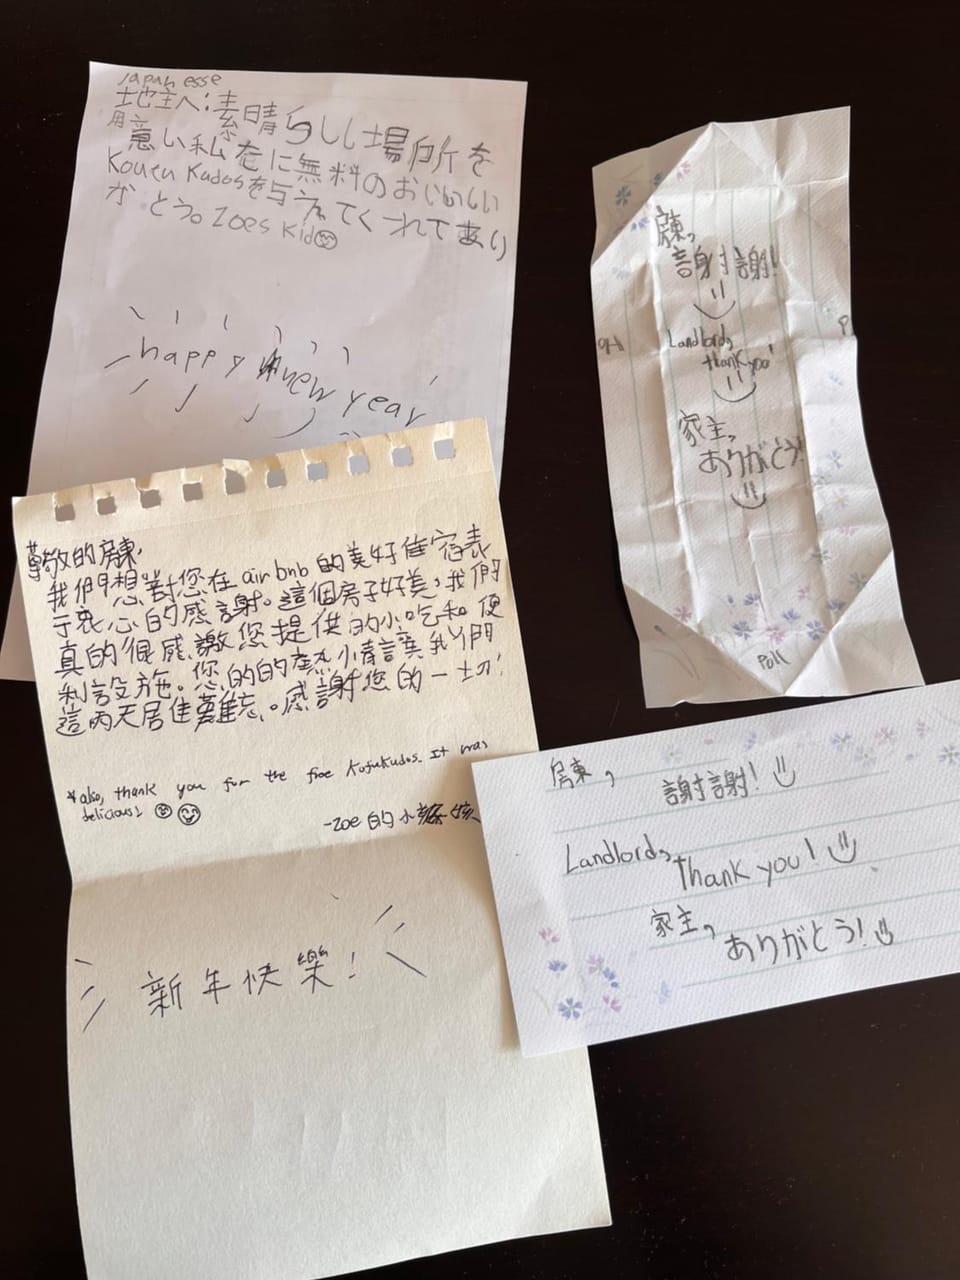 Japanesse
地主へ:素晴らしい場所を
用意い私たに無料のおいしい
Kouen Kudosを与えてくれてあり
がとう。Zoes Kid
happy new year
房東,
謝謝!
Landlord,
thank you!
家主,
ありがとう!
Poll
尊敬的房東,
我們想對您在airbnb的美好住宿表
于衷心的感謝。這個房子好美,我們
真的很感激您提供的小吃和便
利設施。您的的熱小青讓我們
這兩天居住難忘。感謝您的一切!
*also, thank you for the free Kofukudos. It was
delicious!
-zoe的小孩
新年快樂!
房東,
謝謝!
Landlord,
thank you!
家主,
ありがとう!